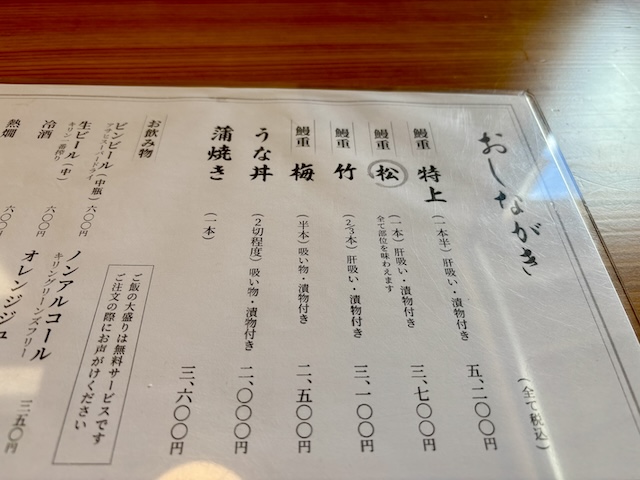 おしながき
(全て税込)
鰻重 特上 (一本半) 肝吸い・漬物付き 五、二〇〇円
鰻重 松 (一本) 肝吸い・漬物付き 三、七〇〇円
全て部位を味わえます
鰻重 竹 (2/3本) 肝吸い・漬物付き 三、一〇〇円
鰻重 梅 (半本) 吸い物・漬物付き 二、五〇〇円
うな丼 (2切程度) 吸い物・漬物付き 二、〇〇〇円
蒲焼き (一本) 三、六〇〇円
お飲み物
ビンビール (中瓶) 六〇〇円
アサヒスーパードライ
生ビール (中)
キリン一番搾り
冷酒 六〇〇円
熱燗 六〇〇
ノンアルコール
キリングリーンズフリー
オレンジジュ
三五〇円
ご飯の大盛りは無料サービスです
ご注文の際にお声がけください